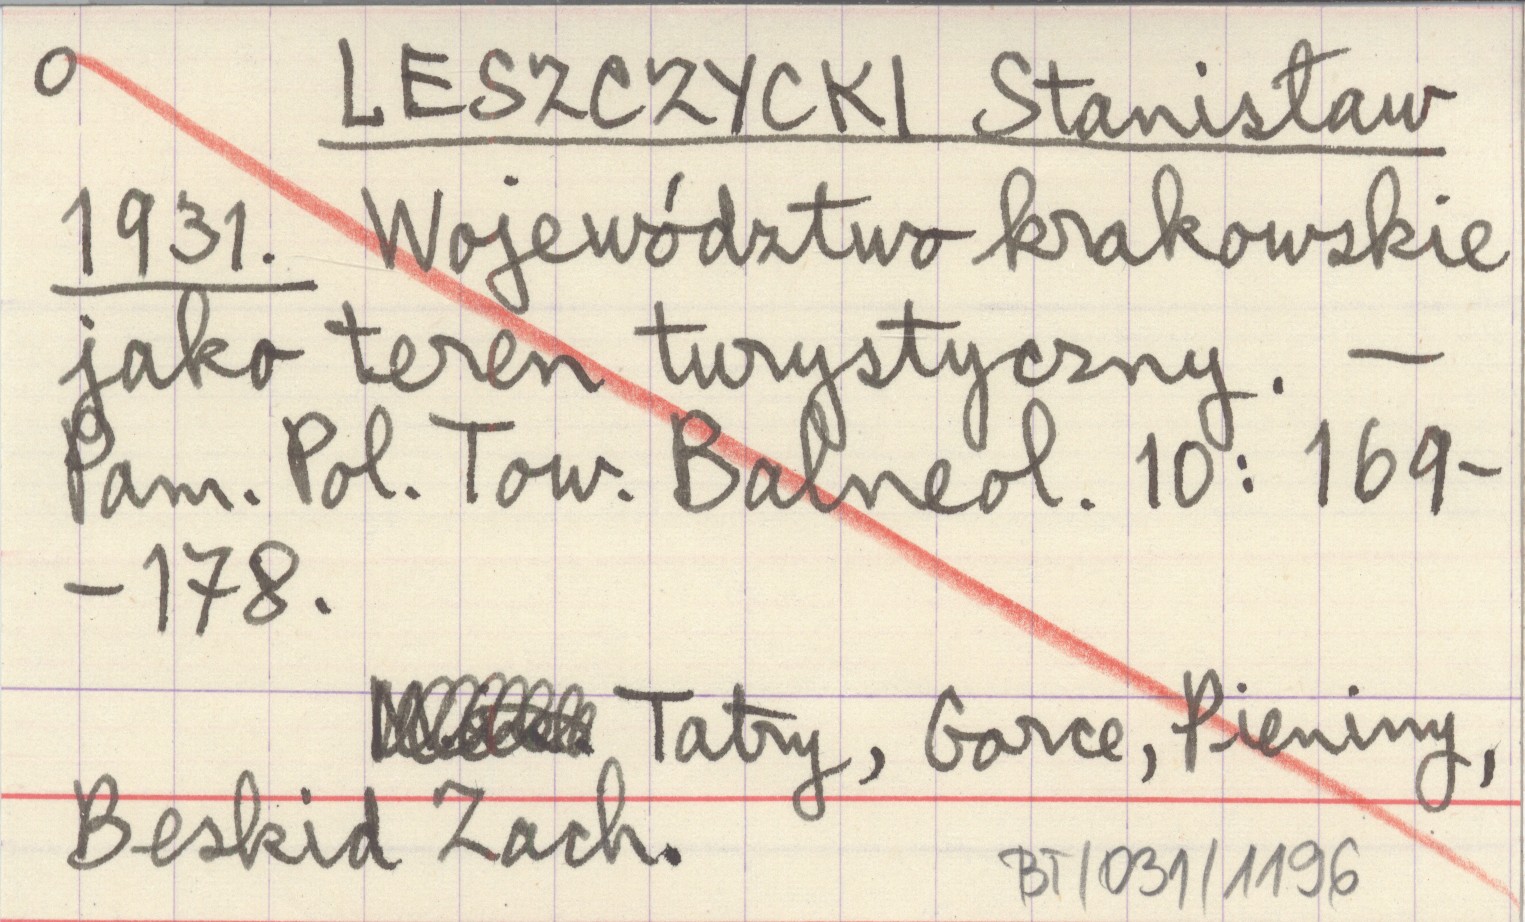 O LESZCZYCKI Stanisław
1931. Województwo krakowskie
jako teren turystyczny. —
Pam. Pol. Tow. Balneol. 10: 169-
-178.
Tatry, Gorce, Pieniny,
Beskid Zach.
BT/031/1196